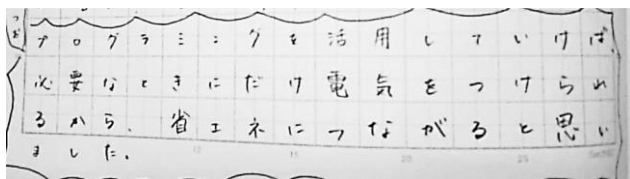 プログラミングを活用していけば、
必要なときにだけ電気をつけられ
るから、省エネにつながると思い
ました。